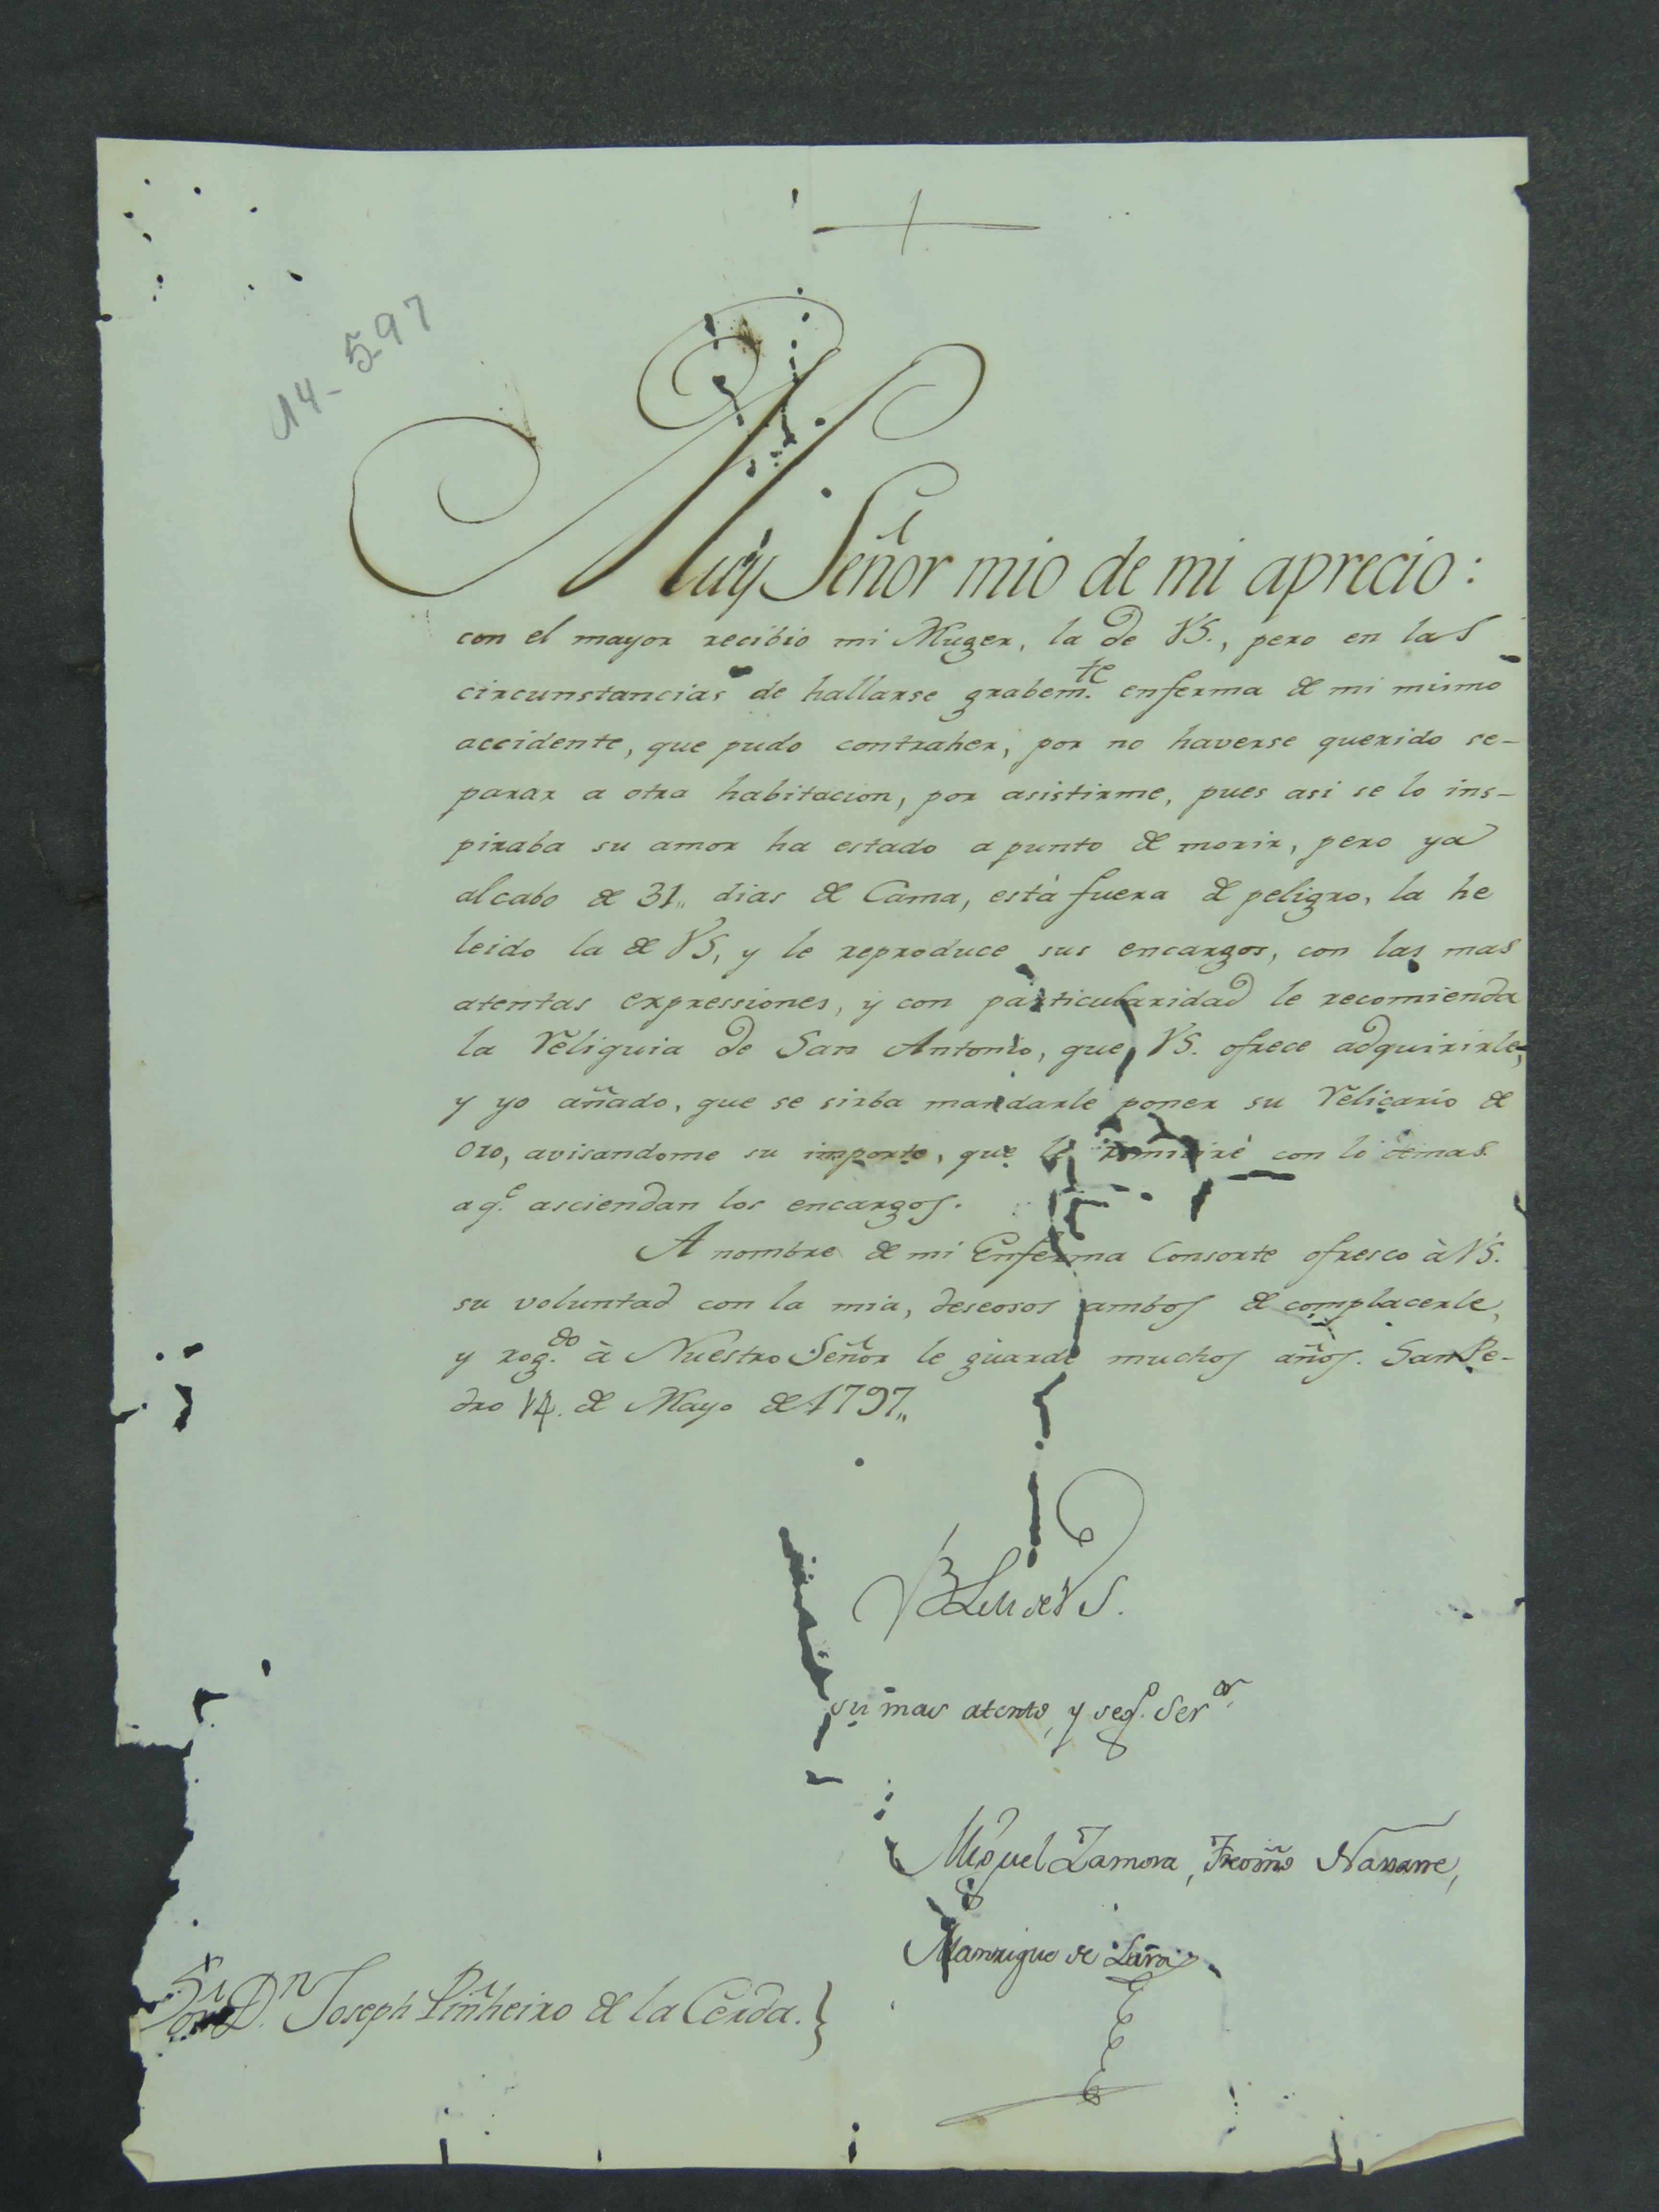 14-597
Muy Señor mio de mi aprecio:
con el mayor recibio mi Muger, la de VS., pero en las
circunstancias de hallarse grabem.te enferma de mi mismo
accidente, que pudo contraher, por no haverse querido se-
parar a otra habitacion, por asistirme, pues asi se lo ins-
piraba su amor ha estado a punto de morir, pero ya
al cabo de 31,, dias de Cama, está fuera de peligro, la he
leido la de VS, y le reproduce sus encargos, con las mas
atentas expressiones, y con particularidad le recomienda
la Reliquia de San Antonio, que VS. ofrece adquirirle,
y yo añado, que se sirba mandarle poner su Relicario de
Oro, avisandome su importe, que le remitiré con lo demas
a q.e asciendan los encargos.
A nombre de mi Enferma Consorte ofresco à VS.
su voluntad con la mia, deseosos ambos de complacerle,
y rog.do à Nuestro Señor le guarde muchos años. San Pe-
dro 14. de Mayo de 1797,,
BLM de VS.
su mas atento, y seg.o Ser.or
Miguel Zamora, Treviño Navarre,
Manrique de Lara
S.or D.n Joseph Piñheiro de la Cerda.